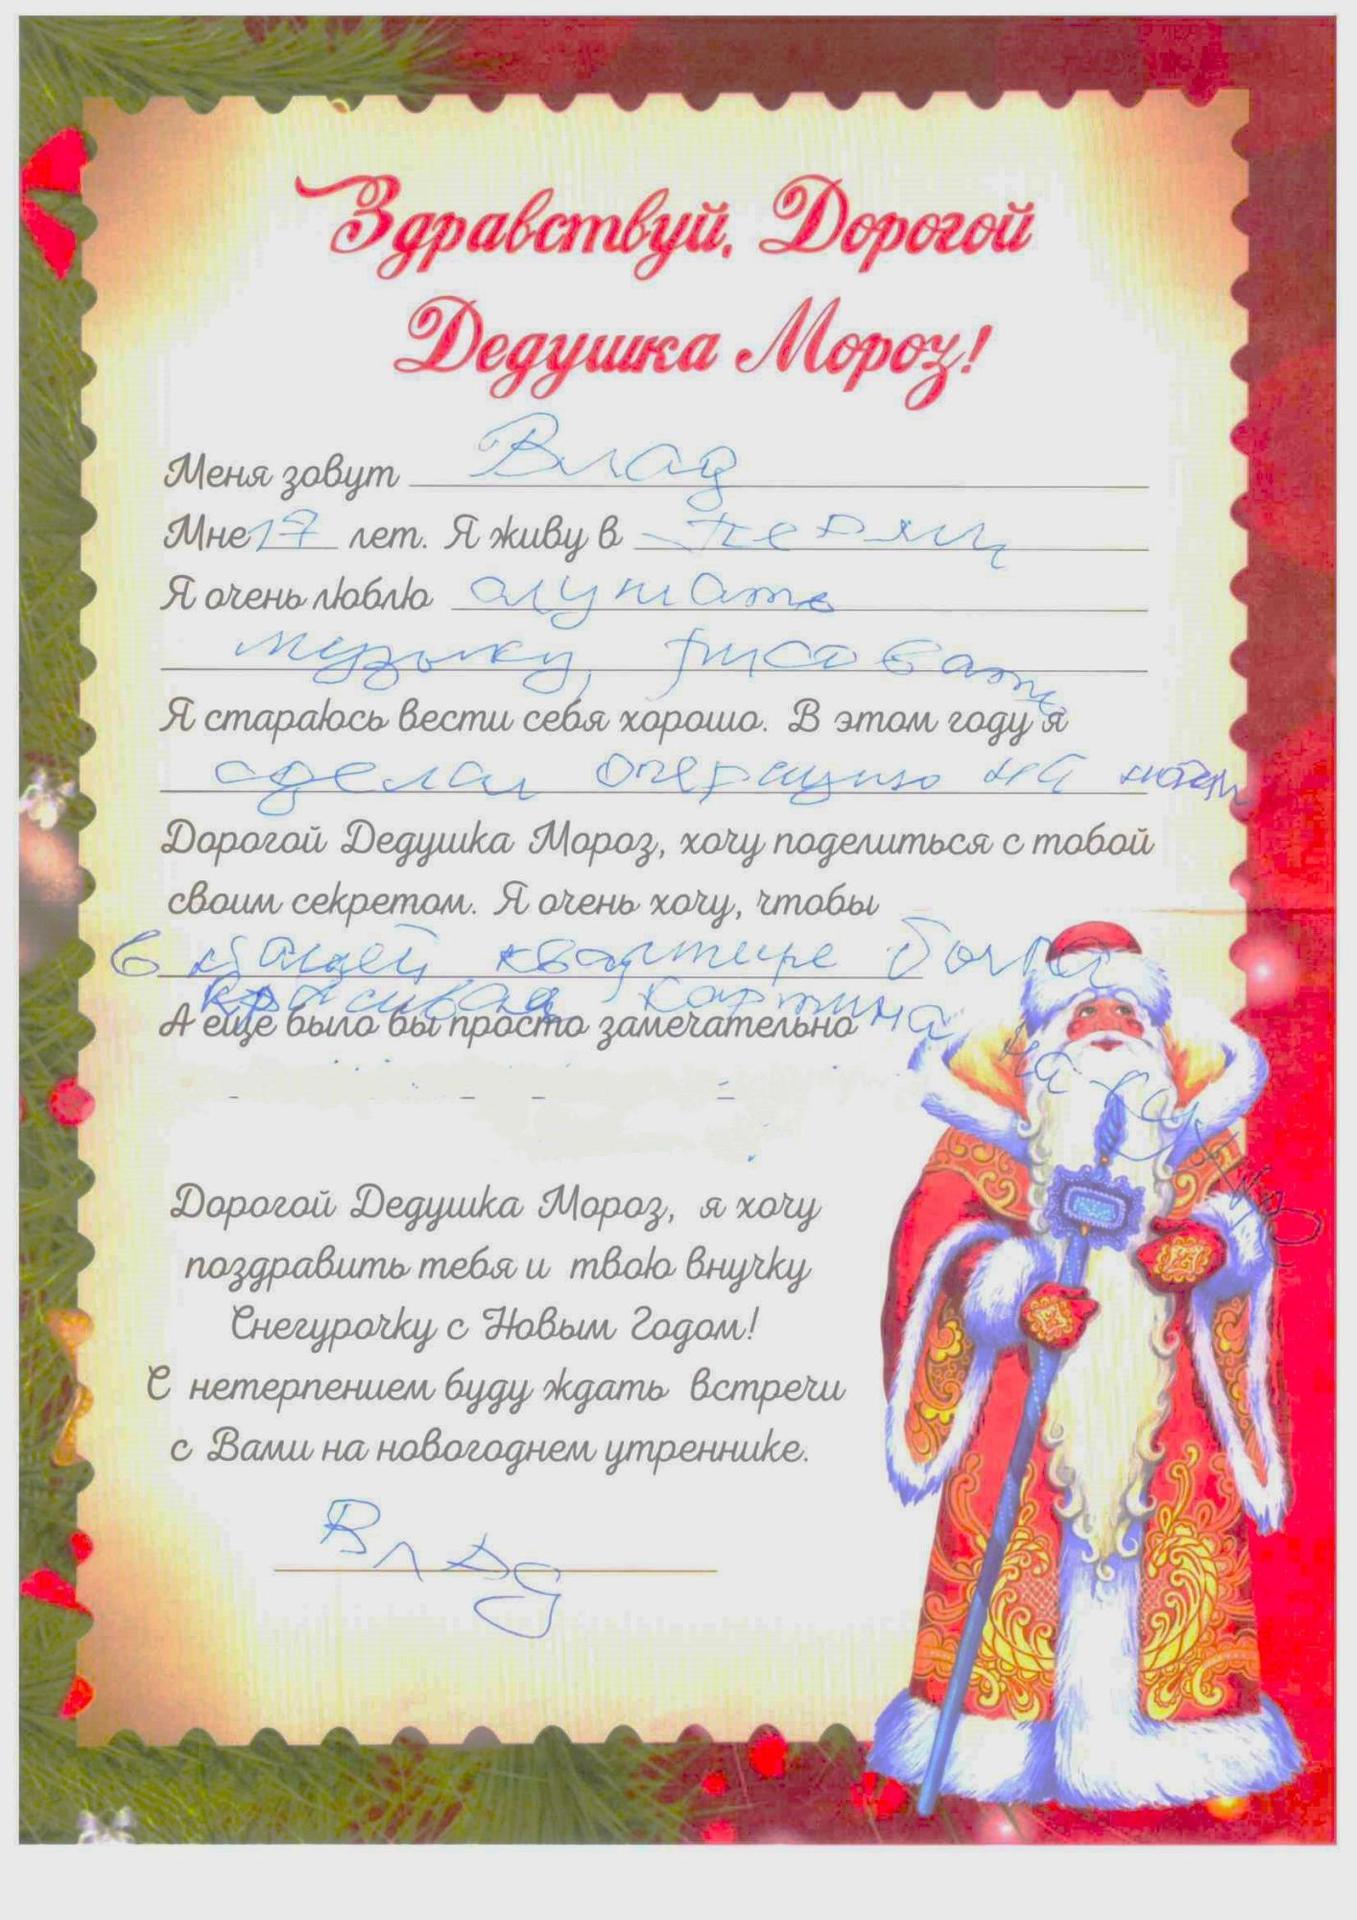 Здравствуй, Дорогой
Дедушка Мороз!
Меня зовут Влад
Мне 17 лет. Я живу в Перми
Я очень люблю слушать
музыку, рисовать
Я стараюсь вести себя хорошо. В этом году я
сделал операцию на
Дорогой Дедушка Мороз, хочу поделиться с тобой
своим секретом. Я очень хочу, чтобы
в нашей квартире была
красивая картина на
А еще было бы просто замечательно
Дорогой Дедушка Мороз, я хочу
поздравить тебя и твою внучку
Снегурочку с Новым Годом!
С нетерпением буду ждать встречи
с Вами на новогоднем утреннике.
Влад